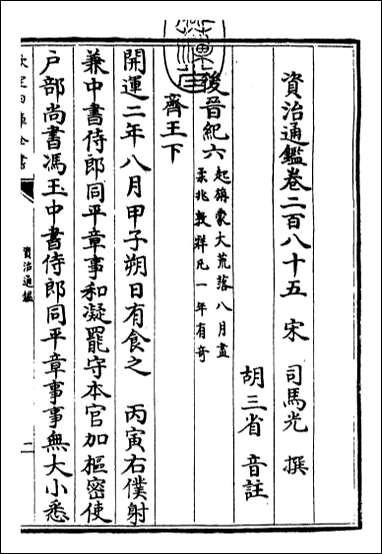 資治通鑑卷二百八十五　宋　司馬光　撰
胡三省　音註
後晉紀六起旃蒙大荒落八月盡
柔兆敦牂凡一年有奇
齊王下
開運二年八月甲子朔日有食之　丙寅右僕射
兼中書侍郎同平章事和凝罷守本官加樞密使
戶部尚書馮玉中書侍郎同平章事事無大小悉
資治通鑑